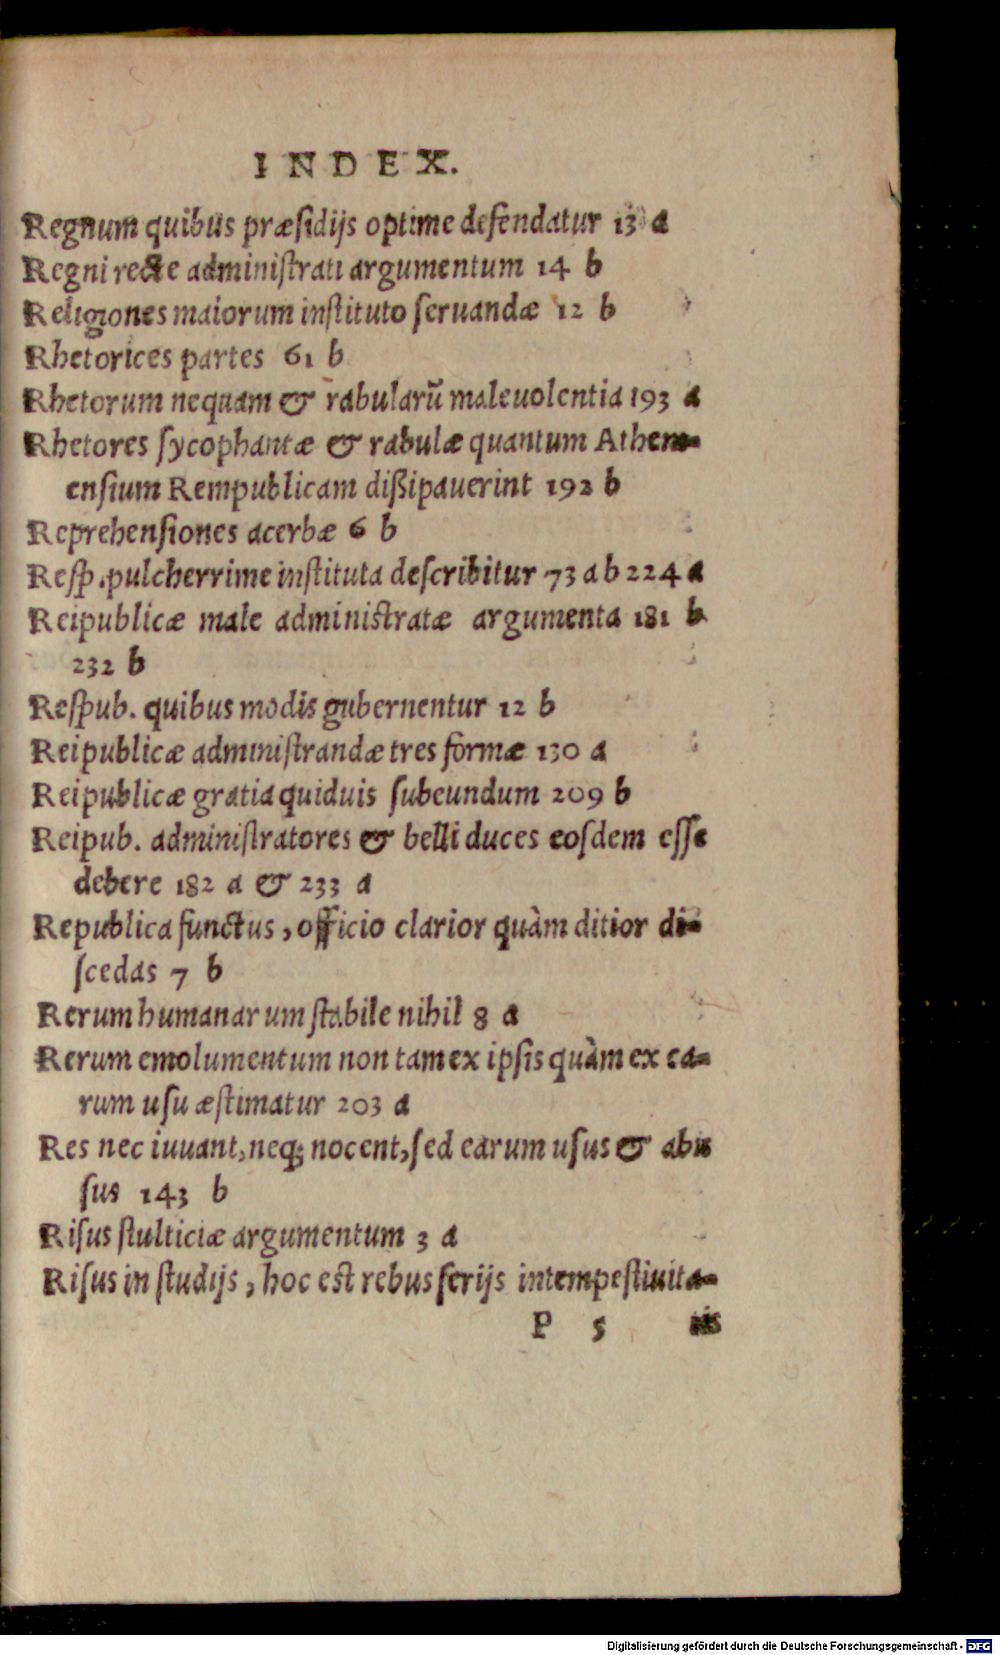 INDEX.
Regnum quibus præsidijs optime defendatur 13 a
Regni recte administrati argumentum 14 b
Religiones maiorum instituto seruandæ 12 b
Rhetorices partes 61 b
Rhetorum nequam & rabularũ maleuolentia 193 a
Rhetores sycophantæ & rabulæ quantum Athen-
ensium Rempublicam dißipauerint 192 b
Reprehensiones acerbæ 6 b
Resp. pulcherrime instituta describitur 73 a b 224 a
Reipublicæ male administratæ argumenta 181 b
232 b
Respub. quibus modis gubernentur 12 b
Reipublicæ administrandæ tres formæ 130 a
Reipublicæ gratia quiduis subeundum 209 b
Reipub. administratores & belli duces eosdem esse
debere 182 a & 233 a
Republica functus, officio clarior quàm ditior di-
scedas 7 b
Rerum humanarum stabile nihil 8 a
Rerum emolumentum non tam ex ipsis quàm ex ea-
rum usu æstimatur 203 a
Res nec iuuant, neq; nocent, sed earum usus & abu
sus 143 b
Risus stulticiæ argumentum 3 a
Risus in studijs, hoc est rebus serijs intempestiuita-
P 5
Digitalisierung gefördert durch die Deutsche Forschungsgemeinschaft - DFG